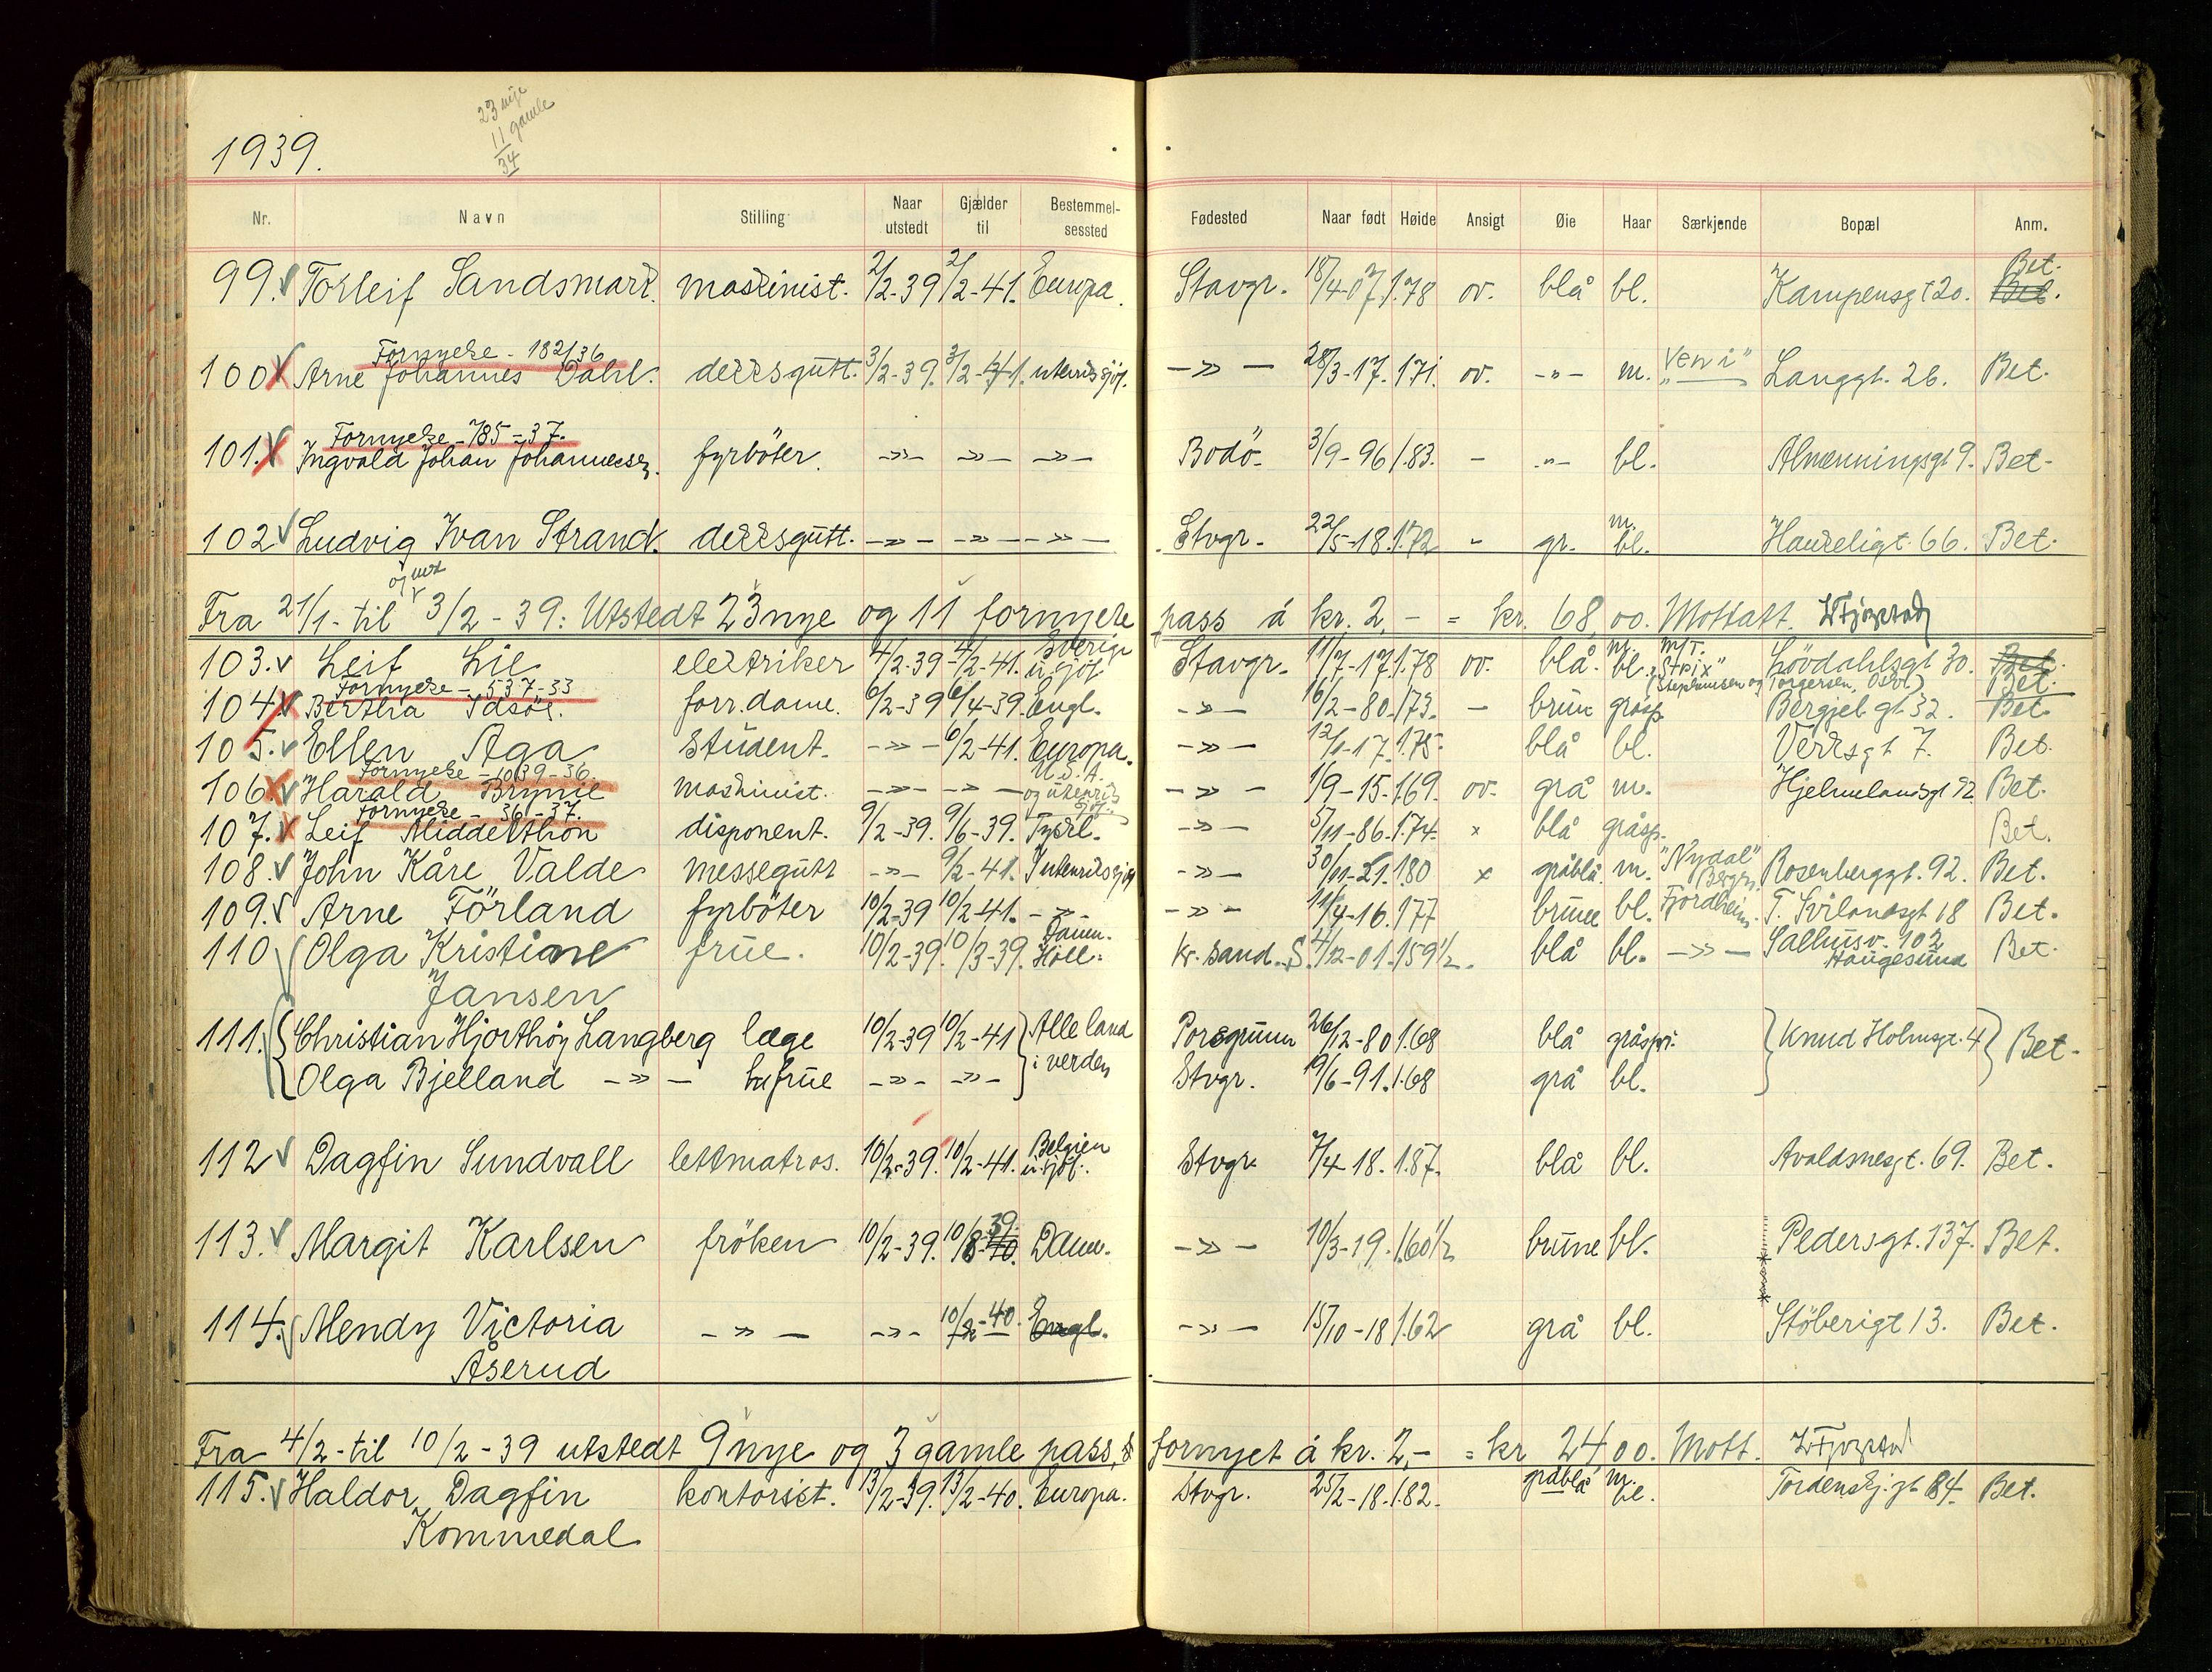 1939.
23 nye
11 gamle
34
Nr. Navn Stilling Naar utstedt Gjælder til Bestemmelsessted Fødested Naar født Høide Ansigt Øie Haar Særkjende Bopæl Anm.
99. Torleif Sandsmark. maskinist. 2/2-39 2/2-41. Europa. Stavgr. 18/4-07. 1.78 ov. blå bl. Kampensgt 20. Bet. Bet.
Fornyelse - 182/36
100 Arne Johannes Dahl. dekksgutt. 3/2-39. 3/2-41. utenriks sjøf. -"- 28/3-17. 1.71. ov. -"- m. "Veni" Langgt. 26. Bet.
Fornyelse - 785-37.
101. Ingvald Johan Johannessen. fyrböter. -"- -"- -"- Bodö 3/9-96 1.83. - -"- bl. Almenningsgt 9. Bet-
102 Ludvig Ivan Strand. dekksgutt. -"- -"- -"- Stvgr. 22/5-18. 1.72 - gr. m. bl. Haukeligt. 66. Bet.
Fra 21/1- til og med 3/2-39: Utstedt 23 nye og 11 fornyede pass á kr. 2,- = kr. 68,00. Mottatt.
103. Leif Lie elektriker 4/2-39 4/2-41. Sverige u.sjöf Stavgr. 11/7-17 1.78 ov. blå. m. bl. M/T. "Strix" Lövdahlsgt 30. Bet.
(Stephansen og Torgersen, Oslo) Bet.
Fornyelse - 537-33
104. Bertha Idsöe. forr.dame. 6/2-39 6/4-39. Engl. -"- 16/2-80. 1.73. - brun gråsp. Bergjel.gt 32. Bet.
105. Ellen Aga student. -"- 6/2-41. Europa. -"- 12/1-17. 1.75. blå bl. Verksgt 7. Bet.
Fornyelse - 1039-36.
106. Harald Brynie maskinist. -"- -"- U.S.A. og utenriks sjöf. -"- 1/9-15. 1.69. ov. grå m. Hjelmelandsgt 32 Bet.
Fornyelse - 361-37.
107. Leif Middelthon disponent. 9/2-39. 9/6-39. Tyskl. -"- 5/11-86. 1.74. x blå gråsp. Bet.
108. John Kåre Valde messegutt -"- 9/2-41. Intenriks sjøf -"- 30/11-21. 1.80 x gråblå. m. "Nydal" Bergen. Rosenberggt. 92. Bet.
109. Arne Förland fyrböter 10/2-39 10/2-41. -"- -"- 11/4-16. 1.77 brune bl. Fjordheim. T. Svilandsgt 18 Bet.
110 Olga Kristiane frue. 10/2-39. 10/3-39. Danm. Holl. Kr.sand.S. 4/12-01. 1.59 1/2. blå bl. -"- Salhusv. 102 Haugesund Bet.
Jansen
111. Christian Hjorthöy Langberg læge 10/2-39 10/2-41 Alle land i verden Porsgrunn 26/12-80 1.68 blå gråspr. Knud Holmsgt. 4 Bet-
Olga Bjelland -"- h.frue -"- -"- Stvgr. 19/6-91. 1.68 grå bl.
112 Dagfin Sundvall lettmatros. 10/2-39. 10/2-41. Belgien u.sjöf. Stvgr. 7/4-18. 1.87. blå bl. Avaldsnesgt. 69. Bet.
113. Margit Karlsen fröken 10/2-39. 10/8-39. 40. Danm. -"- 10/3-19. 1.60 1/2 brune bl. Pedersgt. 137. Bet.
114. Mendy Victoria -"- -"- 10/2-40. Engl. -"- 15/10-18 1.62 grå bl. Stöberigt 13. Bet.
Åserud
Fra 4/2- til 10/2-39 utstedt 9 nye og 3 gamle pass, fornyet á kr. 2,- = kr 24 00. Mott.
115. Haldor Dagfin kontorist. 13/2-39. 13/2-40. Europa. Stvgr. 25/2-18. 1.82. gråblå m. bl. Tordenskj.gt 84 Bet.
Kommedal